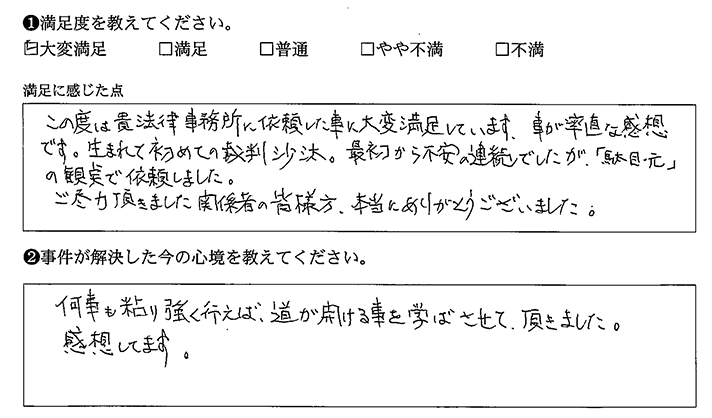 ❶満足度を教えてください。
☑大変満足 □満足 □普通 □やや不満 □不満
満足に感じた点
この度は貴法律事務所に依頼した事に大変満足しています、事が率直な感想
です。生まれて初めての裁判沙汰。最初から不安の連続でしたが、「駄目元」
の観点で依頼しました。
ご尽力頂きました関係者の皆様方、本当にありがとうございました。
❷事件が解決した今の心境を教えてください。
何事も粘り強く行えば、道が開ける事を学ばさせて、頂きました。
感想してます。